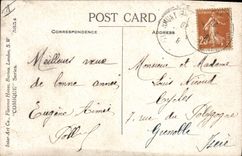 POST CARD
CORRESPONDENCE
Inter-Art Co., Florence House, Barnes, London, S.W.
"COMIQUE" Series.
Meilleurs vœux
de bonne année
Eugène
Monsieur et Madame
Louis
7 rue de Polygone
Grenoble
Isère